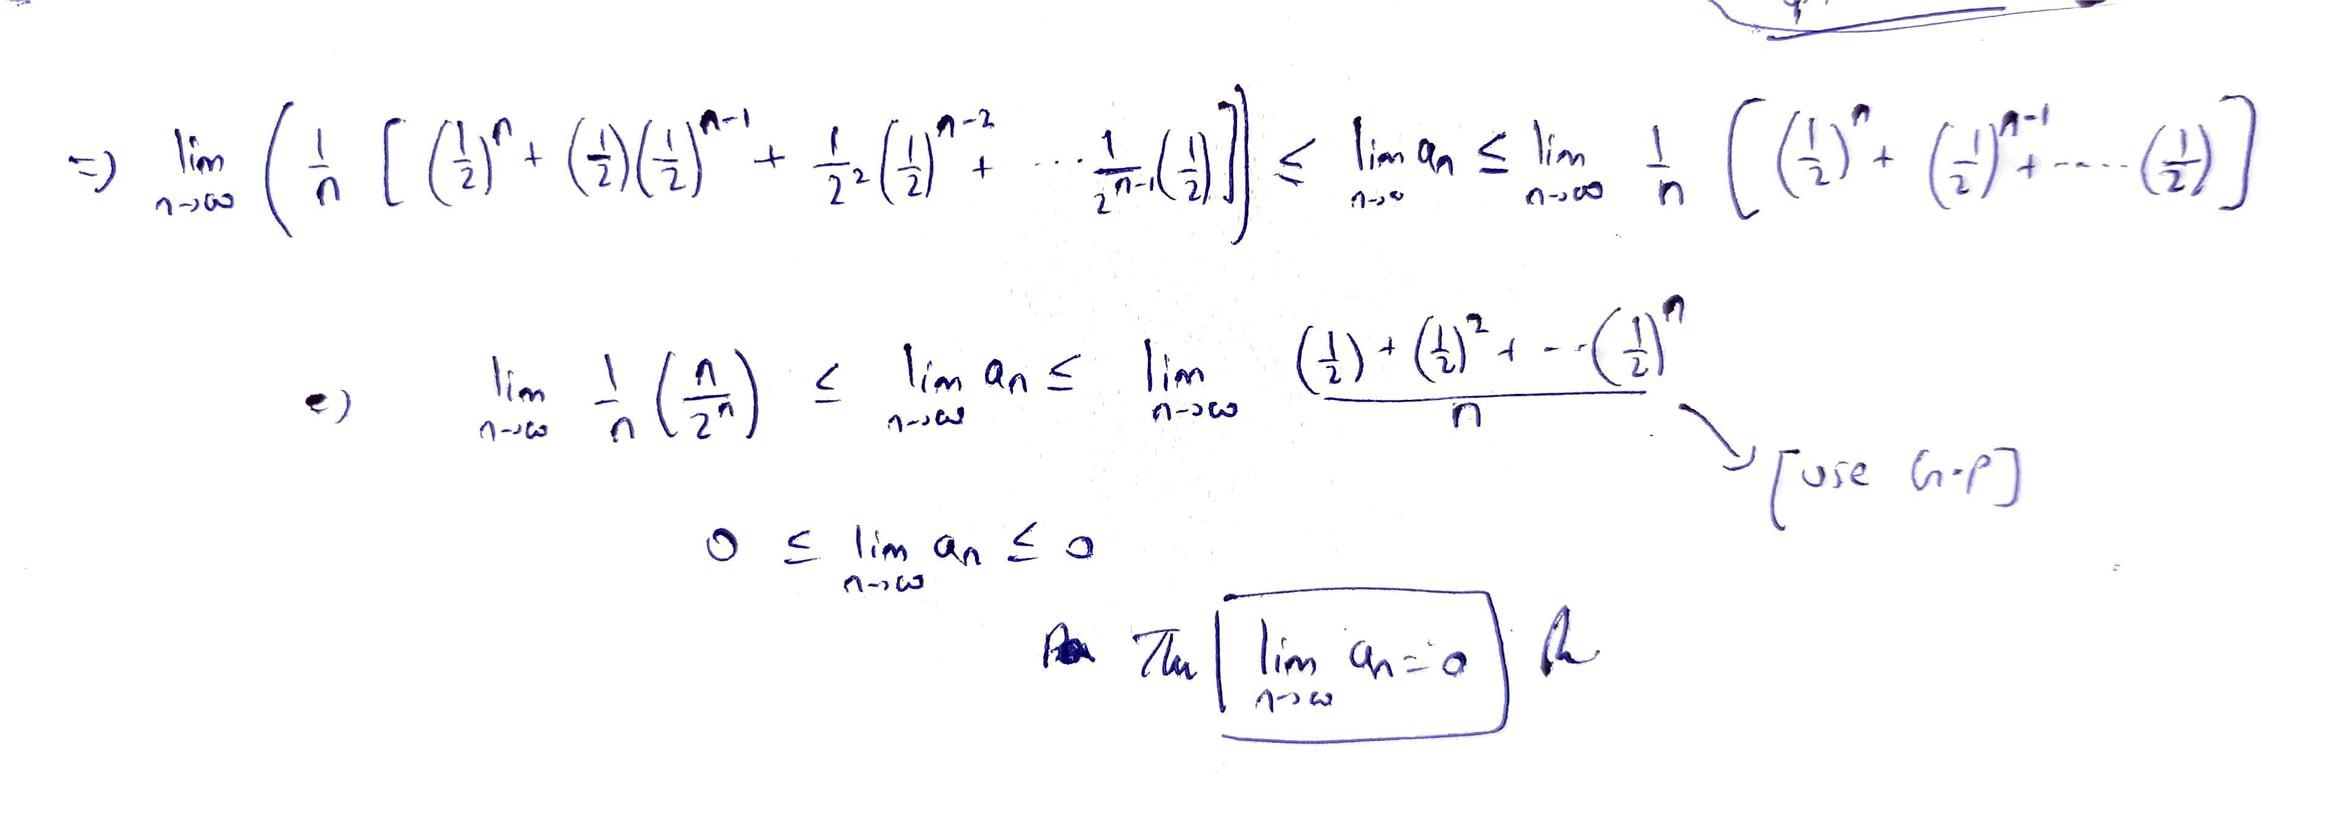 =) lim n→∞ ( 1/n [ (1/2)^n + (1/2)(1/2)^{n-1} + 1/2^2 (1/2)^{n-2} + ... 1/2^{n-1} (1/2) ] ) ≤ lim n→∞ an ≤ lim n→∞ 1/n [ (1/2)^n + (1/2)^{n-1} + ..... (1/2) ]
=) lim n→∞ 1/n ( n/2^n ) ≤ lim n→∞ an ≤ lim n→∞ ( (1/2) + (1/2)^2 + --- (1/2)^n ) / n
[use G.P]
0 ≤ lim n→∞ an ≤ 0
lim n→∞ an = 0